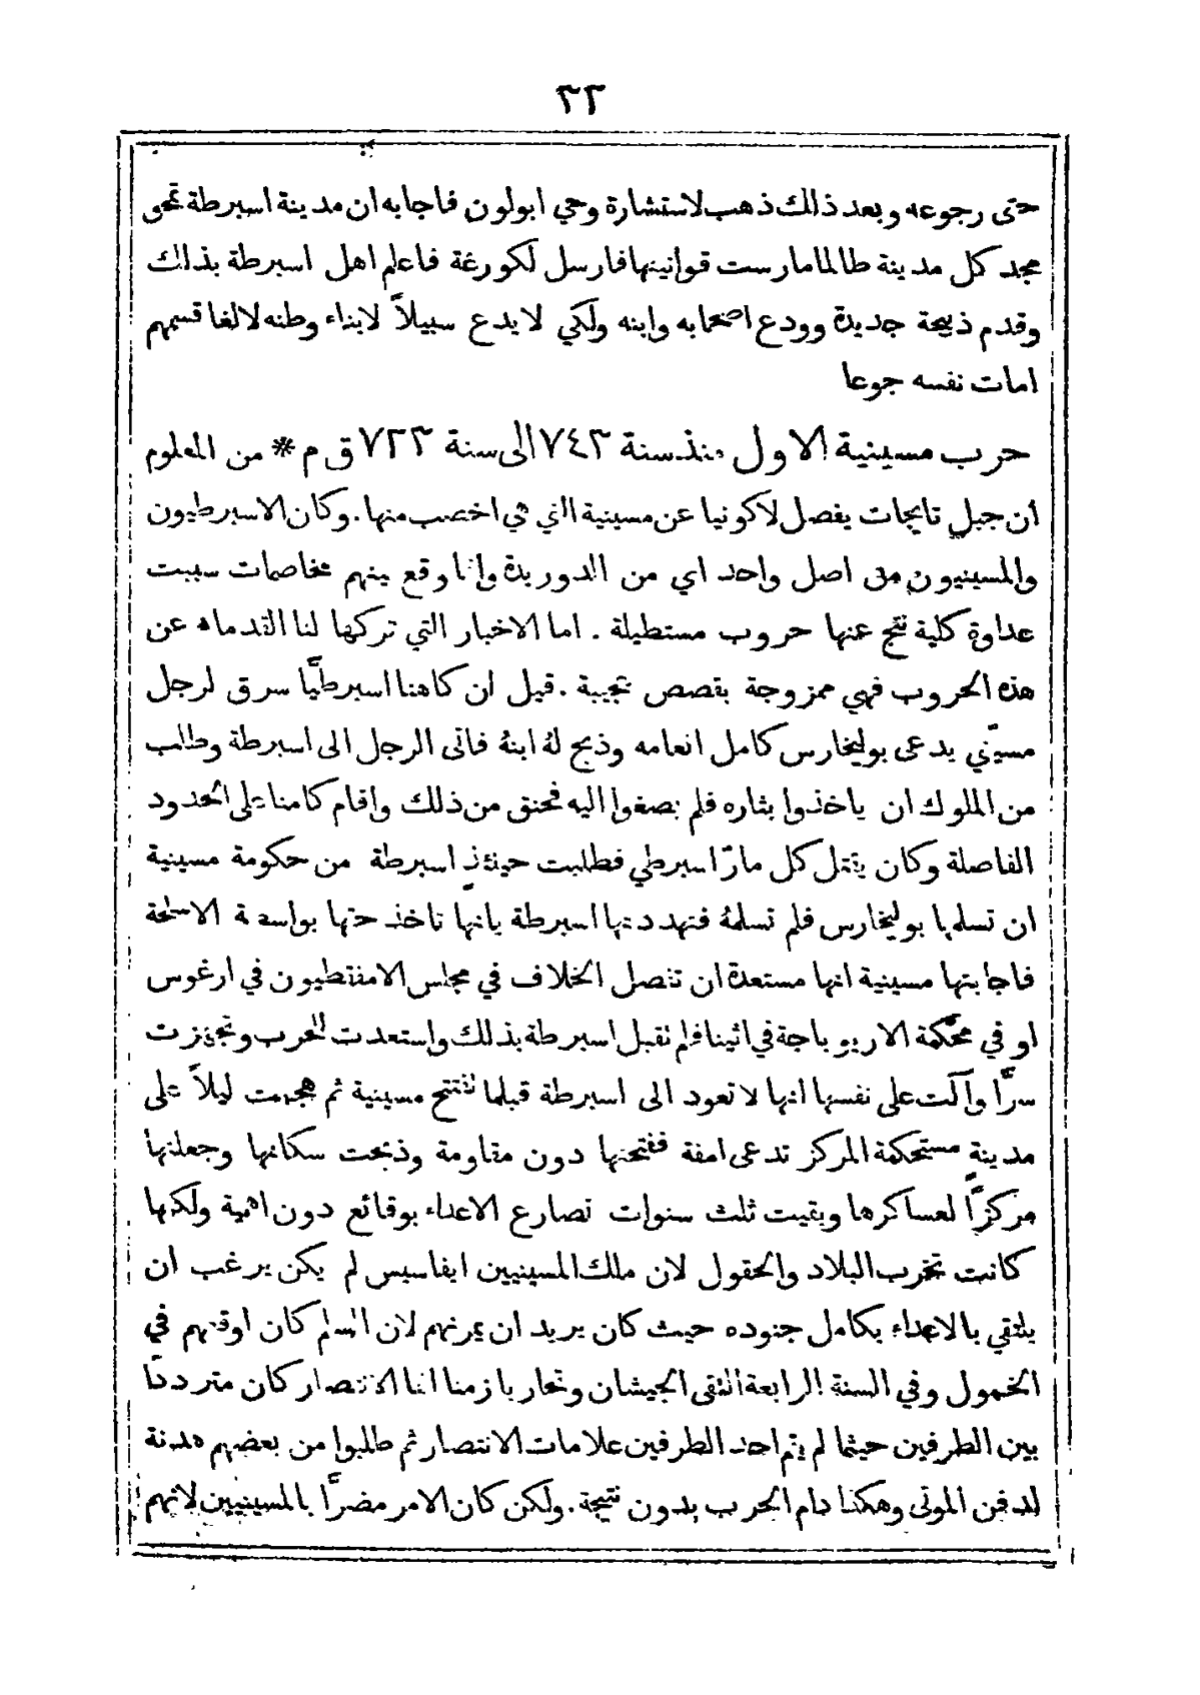 ٣٣
حتى رجوعه وبعد ذلك ذهب لاستشارة وحي ابولون فاجابه ان مدينة اسبرطة تمحق
مجد كل مدينة طالما مارست قوانينها فارسل لكورغة فاعلم اهل اسبرطة بذلك
وقدم ذبيحة جديدة وودع اصحابه وابنه ولكي لا يدع سبيلاً لابناء وطنه لالغا قسمهم
امات نفسه جوعا
حرب مسينية الاول منذ سنة ٧٤٣ الى سنة ٧٢٣ ق م * من المعلوم
ان جبل تايجات يفصل لاكونيا عن مسينية التي هي اخصب منها . وكان الاسبرطيون
والمسينيون من اصل واحد اي من الدوريدة وانما وقع بينهم مخاصمات سببت
عداوة كلية نتج عنها حروب مستطيلة . اما الاخبار التي تركها لنا القدماء عن
هذه الحروب فهي ممزوجة بقصص عجيبة . قيل ان كاهنا اسبرطيًّا سرق لرجل
مسيّني يدعى بوليخارس كامل انعامه وذبح لهُ ابنهُ فاتى الرجل الى اسبرطة وطلب
من الملوك ان ياخذوا بثاره فلم يصغوا اليه فحنق من ذلك واقام كامنا على الحدود
الفاصلة وكان يقتل كل مارّ اسبرطي فطلبت حينئذٍ اسبرطة من حكومة مسينية
ان تسلمها بوليخارس فلم تسلمهُ فتهددتها اسبرطة بانها تاخذ حقها بواسطة الاسلحة
فاجابتها مسينية انها مستعدة ان تفصل الخلاف في مجلس الامفتطيون في ارغوس
او في محكمة الاريوباجة في اثينا فلم تقبل اسبرطة بذلك واستعدت للحرب وتجهزت
سرًّا وآلت على نفسها انها لا تعود الى اسبرطة قبلما تفتتح مسينية ثم هجمت ليلاً على
مدينةٍ مستحكمة المركز تدعى امفة ففتحتها دون مقاومة وذبحت سكانها وجعلتها
مركزًا لعساكرها وبقيت ثلث سنوات تصارع الاعداء بوقائع دون اهمية ولكنها
كانت تخرب البلاد والحقول لان ملك المسينيين ايفاسيس لم يكن يرغب ان
يلتقي بالاعداء بكامل جنوده حيث كان يريد ان يمرنهم لان السلم كان اوقعهم في
الخمول وفي السنة الرابعة التقى الجيشان وتحاربا زمنا انما الانتصار كان مترددًا
بين الطرفين حيثما لم يقم احد الطرفين علامات الانتصار ثم طلبوا من بعضهم هدنة
لدفن الموتى وهكذا دام الحرب بدون نتيجة . ولكن كان الامر مضرًّا بالمسينيين لانهم